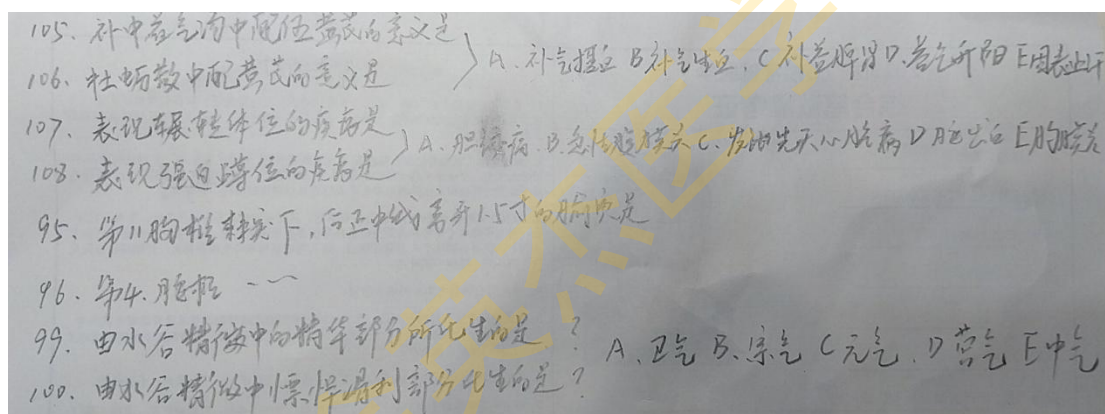 105、补中益气汤中配伍黄芪的意义是
106、牡蛎散中配黄芪的意义是
A、补气摄血 B补气生血、C补益脾胃D、益气升阳 E固表止汗
107、表现辗转体位的疾病是
108、表现强迫蹲位的疾病是
A、胆 病、B急性腹膜炎 C、发绀先天心脏病 D脑出血 E胸膜炎
95、第11胸椎棘突下,后正中线旁开1.5寸的腧穴是
96、第4、腰椎 ……
99、由水谷精微中的精华部分所化生的是?
100、由水谷精微中慓悍滑利部分化生的是?
A、卫气 B、宗气 C元气、D营气 E中气
英杰医学